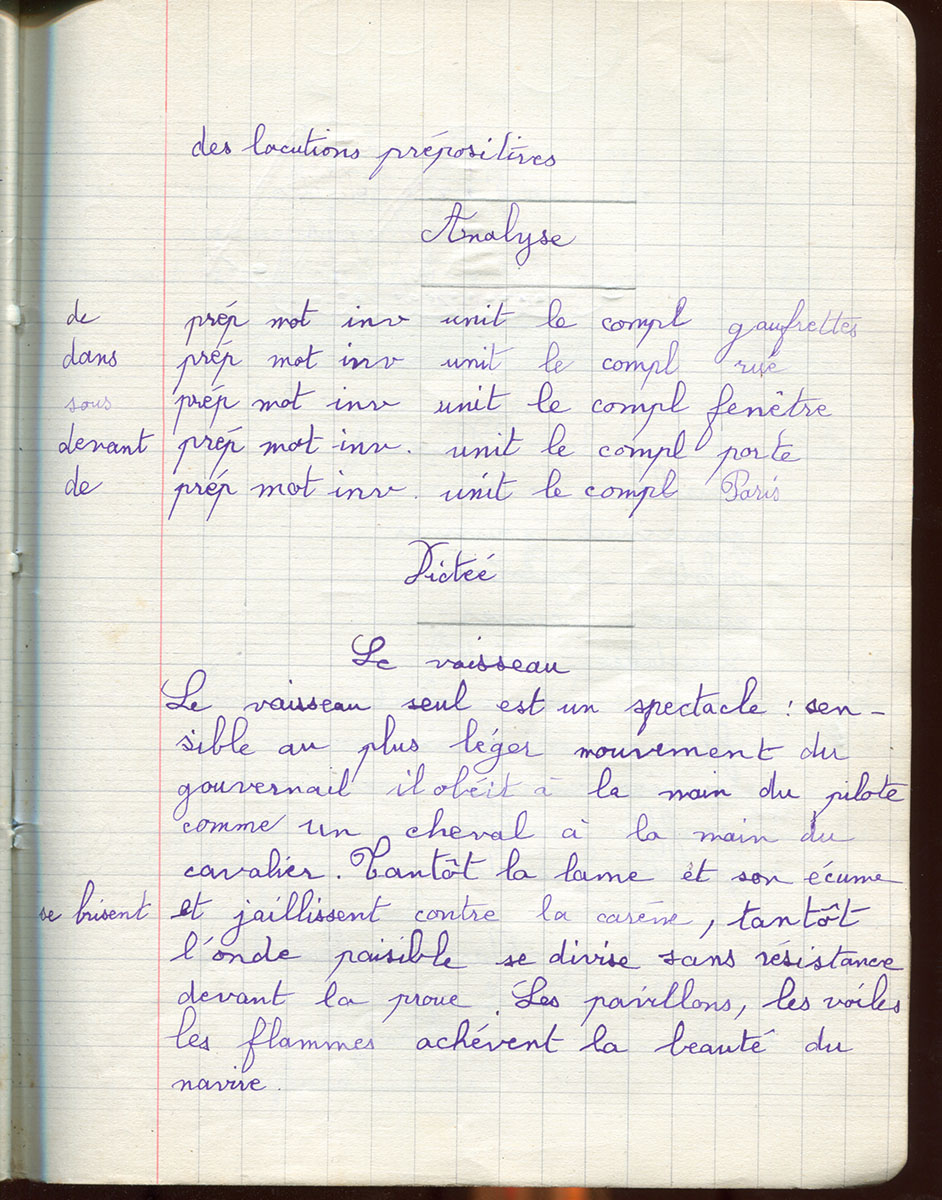 des locutions prépositives
Analyse
de prép mot inv unit le compl gaufrettes
dans prép mot inv unit le compl rue
sous prép mot inv unit le compl fenêtre
devant prép mot inv. unit le compl porte
de prép mot inv. unit le compl Paris
Dictée
Le vaisseau
Le vaisseau seul est un spectacle : sen-
sible au plus léger mouvement du
gouvernail il obéit à la main du pilote
comme un cheval à la main du
cavalier. Tantôt la lame et son écume
se brisent et jaillissent contre la carène, tantôt
l'onde paisible se divise sans résistance
devant la proue. Les pavillons, les voiles
les flammes achévent la beauté du
navire.